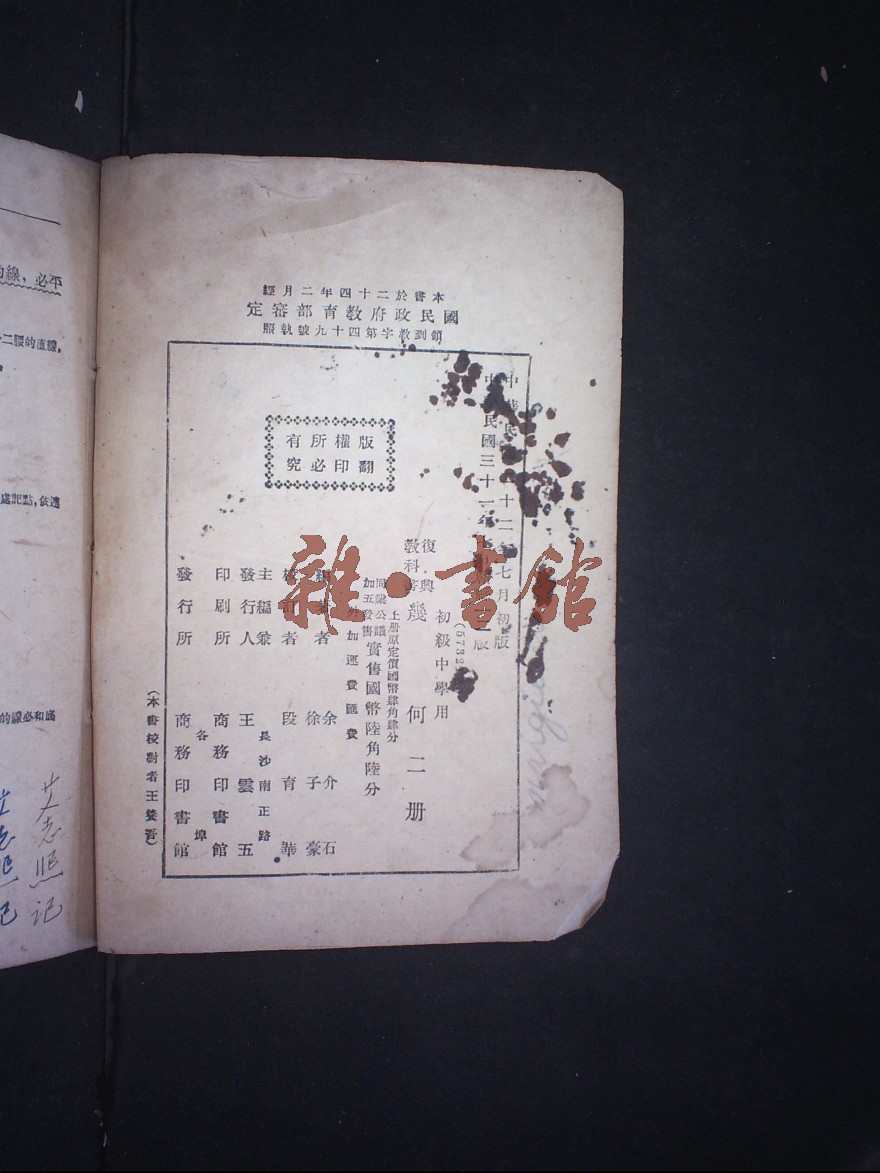 本書於二十四年二月經
國民政府教育部審定
領到教字第四十九號執照
版權所有
翻印必究
七月初版
民國三十一年
初級中學用
復興
教科書
幾何二册
上册原定價國幣肆角肆分
同業公議
加五發售
實售國幣陸角陸分
外加運費匯費
者 余介石
徐子豪
校訂者 段育華
主編兼
發行人 王雲五
長沙南正路
印刷所 商務印書館
各埠
發行所 商務印書館
(本書校對者王養吾)
雜·書館
的線，必平
二腰的直線，
處記點，依連
的線必和底
艾志熙记